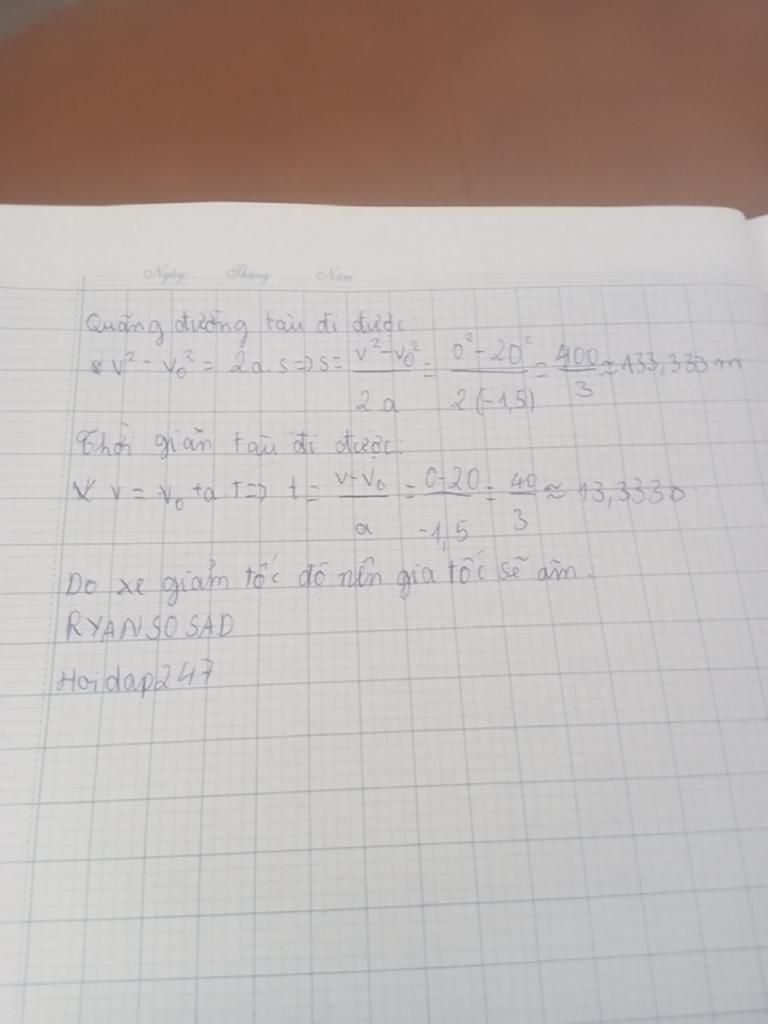 Ngày Tháng Năm
Quãng đường tàu đi được:
v² - v₀² = 2a.s => s = (v² - v₀²)/(2a) = (0² - 20²)/(2(-1,5)) = 400/3 ≈ 133,333 m
Thời gian tàu đi được:
v = v₀ + a.t => t = (v - v₀)/a = (0 - 20)/(-1,5) = 40/3 ≈ 13,333
Do xe giảm tốc độ nên gia tốc sẽ âm.
RYANSOSAD
Hoidap247